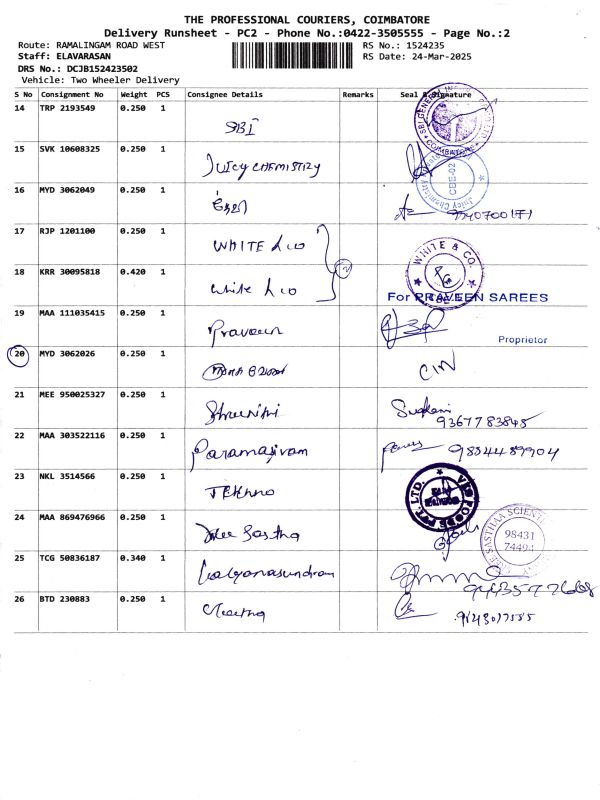 THE PROFESSIONAL COURIERS, COIMBATORE
Delivery Runsheet - PC2 - Phone No.:0422-3505555 - Page No.:2
Route: RAMALINGAM ROAD WEST
RS No.: 1524235
Staff: ELAVARASAN
RS Date: 24-Mar-2025
DRS No.: DCJB152423502
Vehicle: Two Wheeler Delivery
S No Consignment No Weight PCS Consignee Details Remarks Seal & Signature
14 TRP 2193549 0.250 1 SBI
15 SVK 10608325 0.250 1 Juicy CHEMISTRY
CBE-02
16 MYD 3062049 0.250 1
17 RJP 1201100 0.250 1 WHITE & CO
WHITE & CO.
18 KRR 30095818 0.420 1 White & CO
2
For PRAVEEN SAREES
19 MAA 111035415 0.250 1 Praveen
Proprietor
20 MYD 3062026 0.250 1
21 MEE 950025327 0.250 1 Shreenithi
9367783845
22 MAA 303522116 0.250 1 Paramasivam
9884489904
23 NKL 3514566 0.250 1 Tekno
24 MAA 869476966 0.250 1 Shree Sastha
98431
74494
25 TCG 50836187 0.340 1 Kalyanasundram
26 BTD 230883 0.250 1